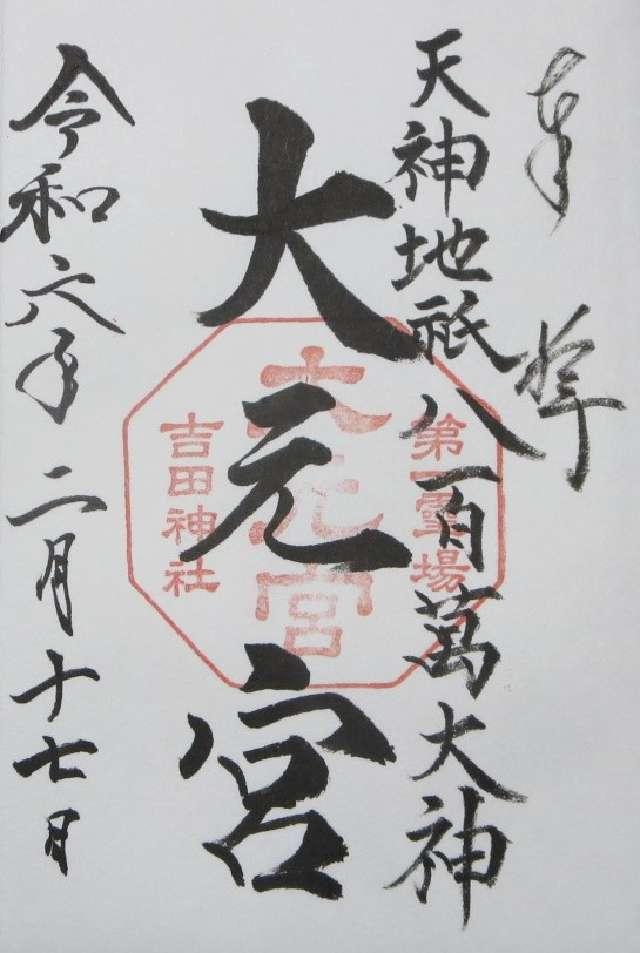 奉拝
天神地祇八百萬大神
大元宮
第一霊場
大元宮
吉田神社
令和六年二月十七日